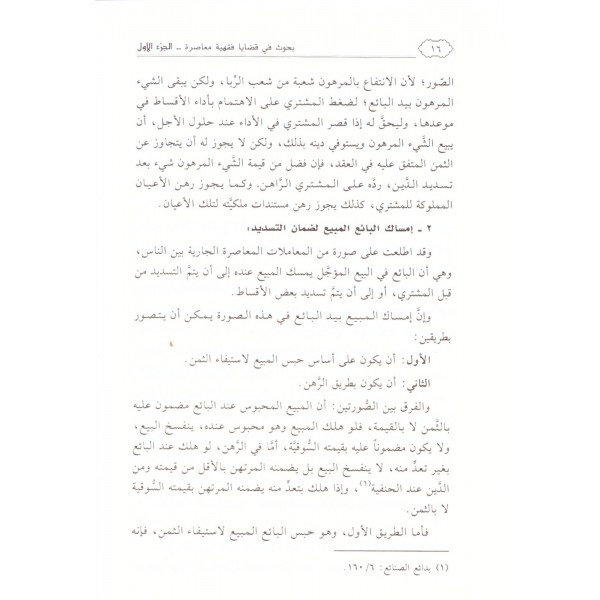 ١٦
بحوث في قضايا فقهية معاصرة ـ الجزء الأول
الصّور؛ لأن الانتفاع بالمرهون شعبة من شعب الرِّبا، ولكن يبقى الشيء
المرهون بيد البائع؛ لضغط المشتري على الاهتمام بأداء الأقساط في
موعدها، وليحقَّ له إذا قصر المشتري في الأداء عند حلول الأجل، أن
يبيع الشَّيء المرهون ويستوفي دينه بذلك، ولكن لا يجوز له أن يتجاوز عن
الثمن المتفق عليه في العقد، فإن فضل من قيمة الشَّيء المرهون شيء بعد
تسديد الدَّين، ردَّه على المشتري الرَّاهن. وكما يجوز رهن الأعيان
المملوكة للمشتري، كذلك يجوز رهن مستندات ملكيَّته لتلك الأعيان.
٢ ـ إمساك البائع المبيع لضمان التسديد:
وقد اطلعت على صورة من المعاملات المعاصرة الجارية بين الناس،
وهي أن البائع في البيع المؤجَّل يمسك المبيع عنده إلى أن يتمَّ التسديد من
قبل المشتري، أو إلى أن يتمَّ تسديد بعض الأقساط.
وإنَّ إمساك المبيع بيد البائع في هذه الصورة يمكن أن يتصور
بطريقين:
الأول: أن يكون على أساس حبس المبيع لاستيفاء الثمن.
الثاني: أن يكون بطريق الرَّهن.
والفرق بين الصُّورتين: أن المبيع المحبوس عند البائع مضمون عليه
بالثَّمن لا بالقيمة، فلو هلك المبيع وهو محبوس عنده، ينفسخ البيع،
ولا يكون مضموناً عليه بقيمته السُّوقيَّة، أمَّا في الرَّهن، لو هلك عند البائع
بغير تعدٍّ منه، لا ينفسخ البيع بل يضمنه المرتهن بالأقل من قيمته ومن
الدَّين عند الحنفية(١)، وإذا هلك بتعدٍّ منه يضمنه المرتهن بقيمته السُّوقية
لا بالثمن.
فأما الطريق الأول، وهو حبس البائع المبيع لاستيفاء الثمن، فإنه
(١) بدائع الصنائع: ٦/ ١٦٠.